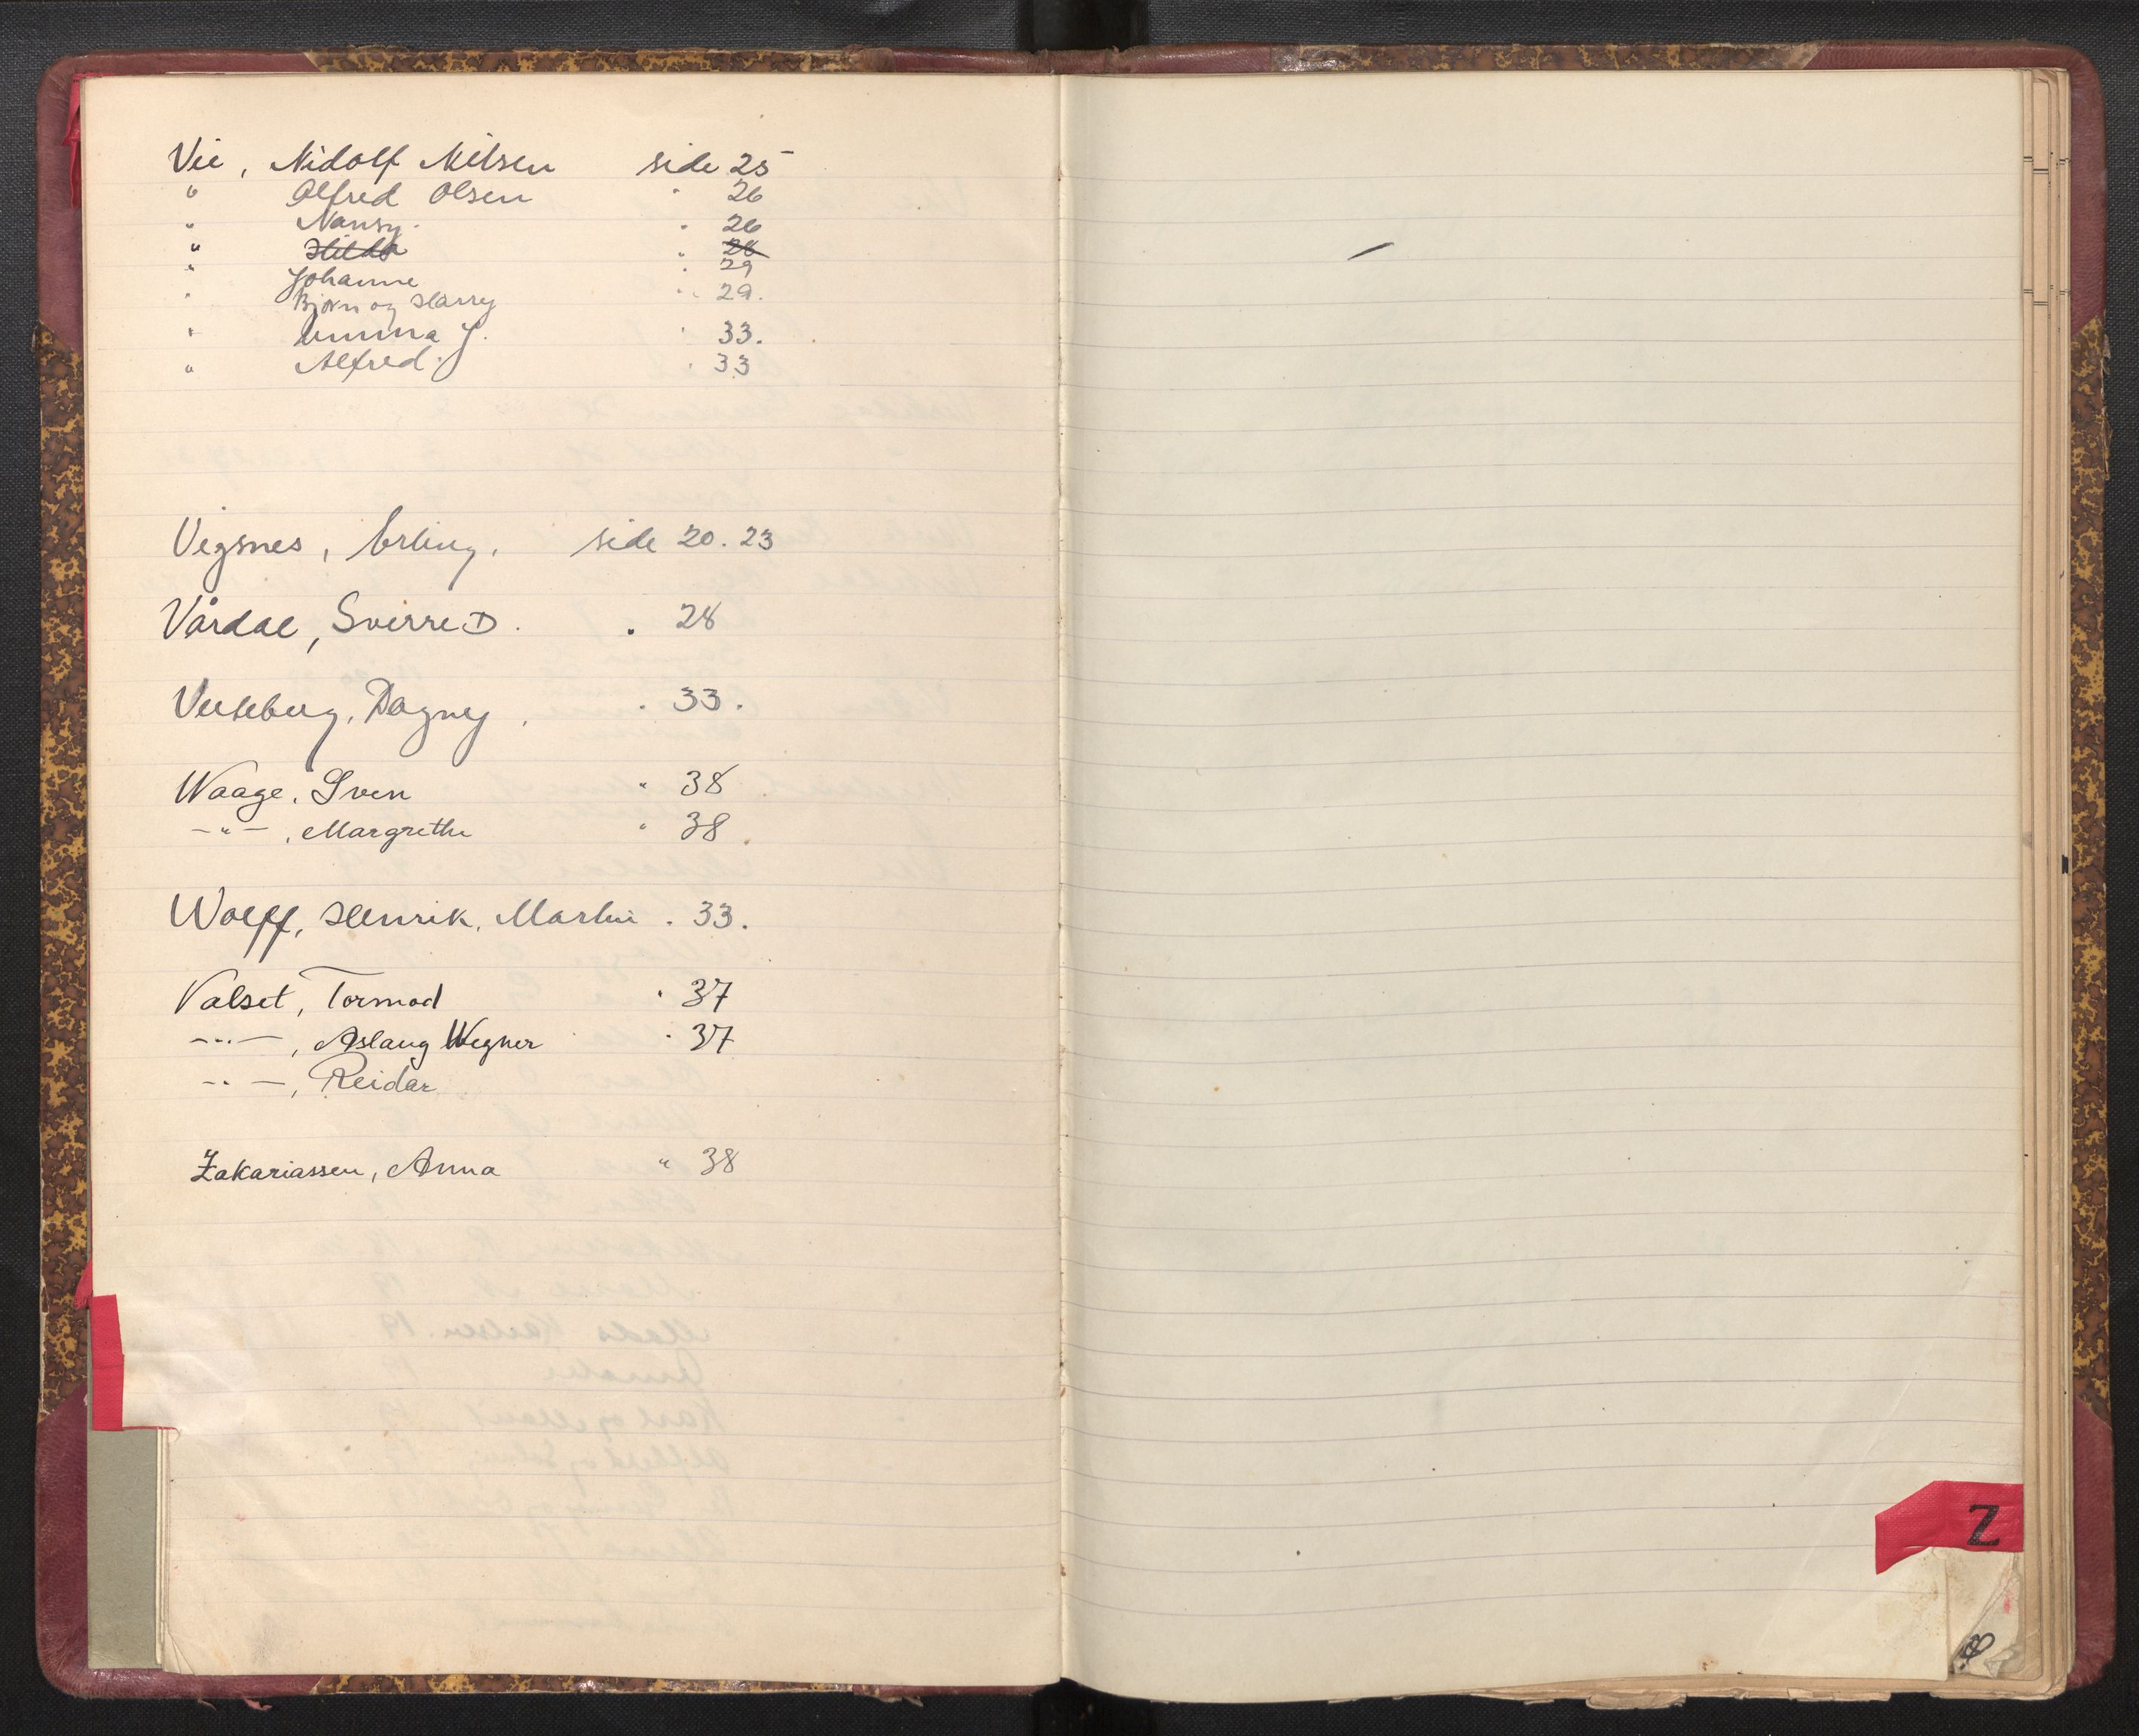 Vie, Nidolf Nilsen side 25
" Alfred Olsen " 26
" Nansy. " 26
" Hilda " 28
" Johanne " 29
" Bjørn og Harry " 29.
" Emma J. " 33.
" Alfred. " 33
Vigsnes, Erling. side 20. 23
Vårdal, Sverre D. " 28
Dagny, . 33.
Waage, Sven " 38
—"—, Margrethe " 38
Wolff, Henrik, Martin . 33.
Valset, Tormod " 37
—"—, Aslaug Wegner " 37
—"—, Reidar
Zakariassen, Anna " 38
Z